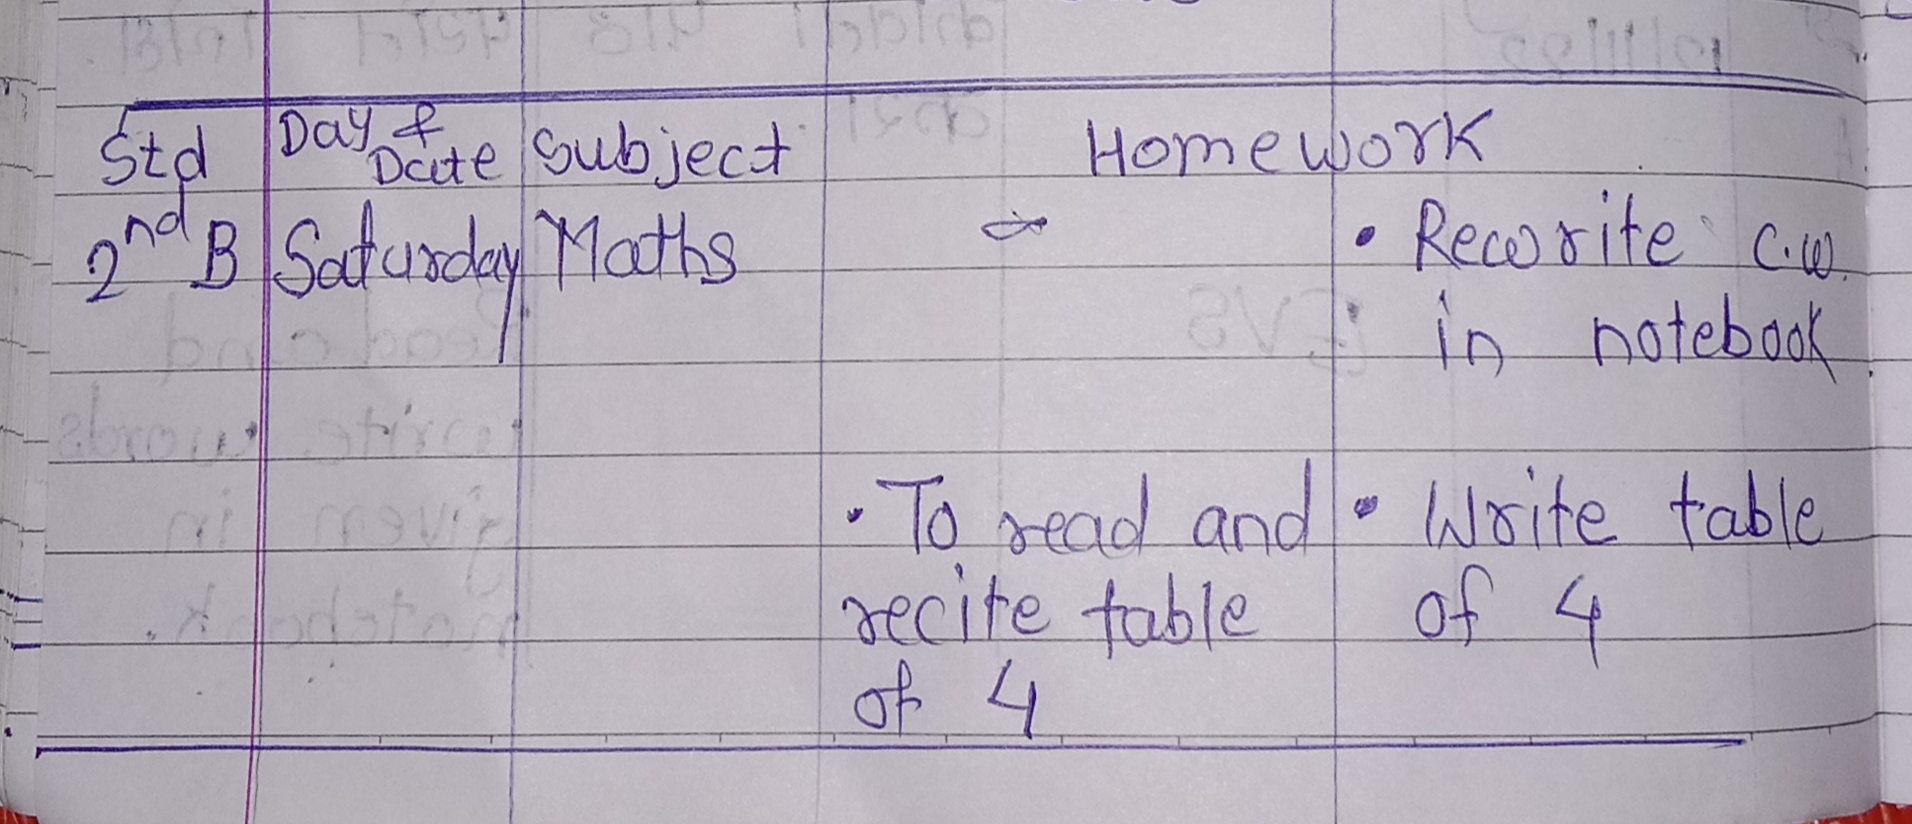 Std Day & Date Subject Homework
2nd B Saturday Maths • Rewrite c.w.
in notebook
• To read and • Write table
recite table of 4
of 4